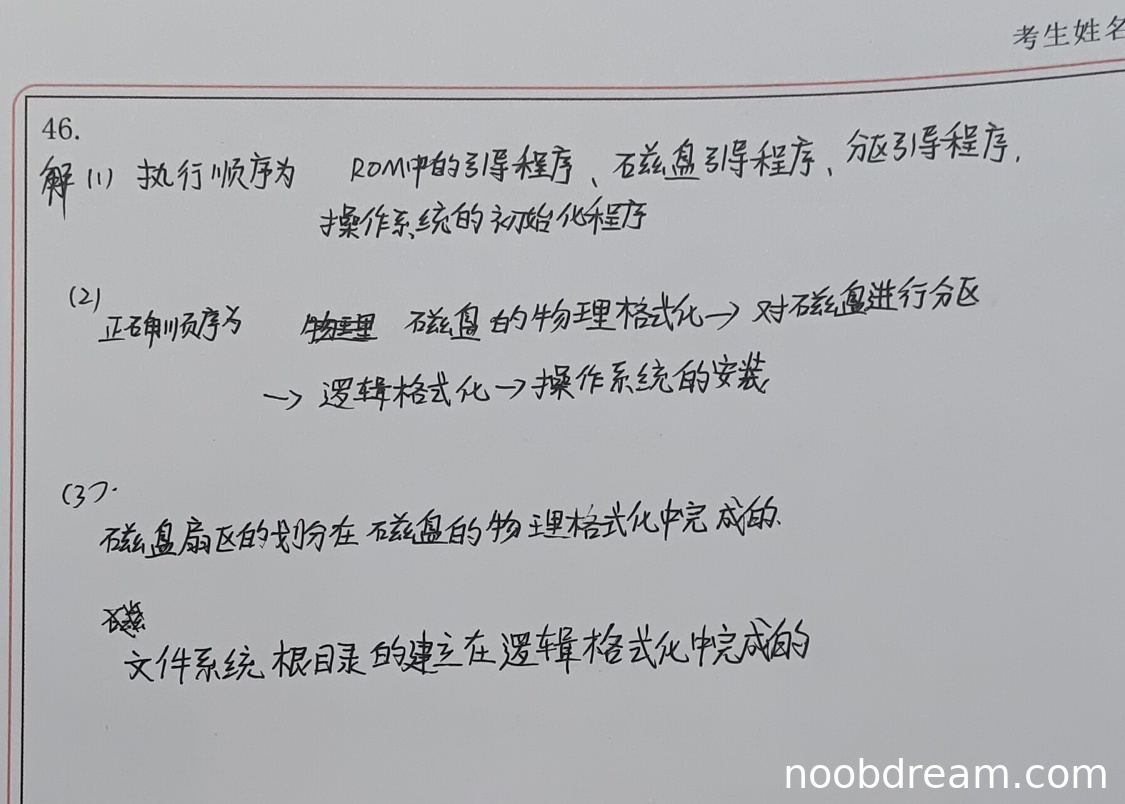 考生姓名
46.
解 (1) 执行顺序为 ROM中的引导程序、磁盘引导程序、分区引导程序,
操作系统的初始化程序
(2) 正确顺序为 磁盘的物理格式化→对磁盘进行分区
→逻辑格式化→操作系统的安装
(3).
磁盘扇区的划分在磁盘的物理格式化中完成的.
文件系统根目录的建立在逻辑格式化中完成的
noobdream.com